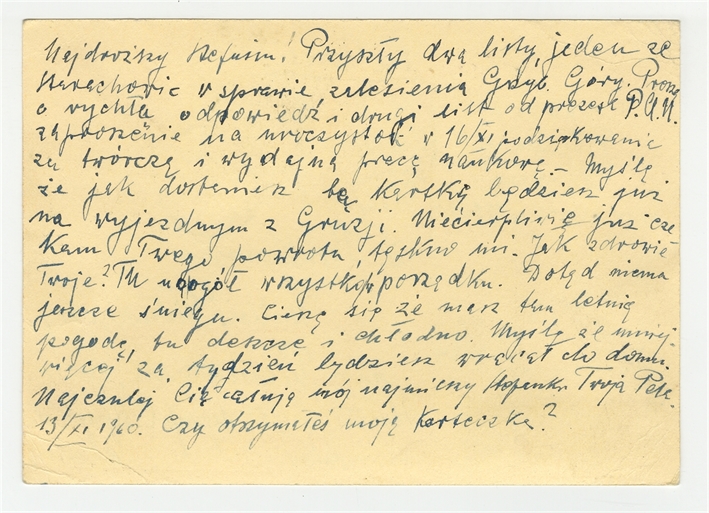 Najdroższy Stefuniu! Przyszły dwa listy, jeden ze
Starachowic w sprawie zalesienia Grzyb. Góry. Proszą
o rychłą odpowiedź i drugi list od prezesa P.A.N.
zaproszenie na uroczystość w 16/XI podziękowanie
za twórczą i wydajną pracę naukową. – Myślę
że jak dostaniesz tą kartkę będziesz już
na wyjezdnym z Gruzji. Niecierpliwie już cze
kam Twego powrotu, tęskno mi. Jak zdrowie
Twoje? Tu wogół wszystko w porządku. Dotąd niema
jeszcze śniegu. Cieszę się że masz tam letnią
pogodę, tu deszcze i chłodno. Myślę że mniej
więcej za tydzień będziesz wracał do domu.
Najczulej Cię całuję mój najmilszy Twoja
13/XI 1960. Czy otrzymałeś moją karteczkę?